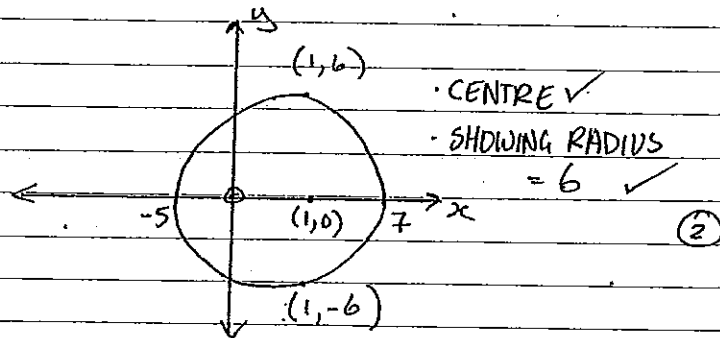 y
(1,6)
· CENTRE ✓
· SHOWING RADIUS
= 6 ✓
-5
(1,0)
7
x
(2)
(1,-6)